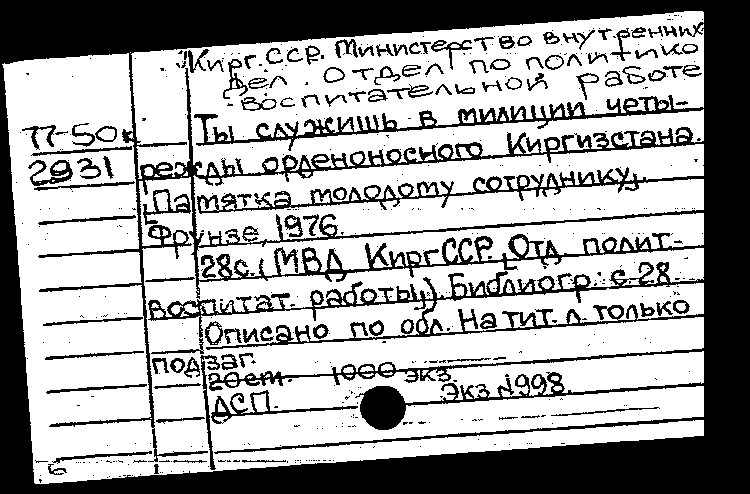 Кирг. ССР. Министерство внутренних
дел. Отдел по политико
воспитательной работе
77-50к
2931
Ты служишь в милиции четы-
режды орденоносного Киргизстана.
[Памятка молодому сотруднику].
Фрунзе, 1976.
28с. (МВД КиргССР. [Отд полит-
воспитат. работы]). Библиогр.: с. 28
Описано по обл. На тит. л. только
подзаг.
20 см. 1000 экз
ДСП. Экз №998.
6